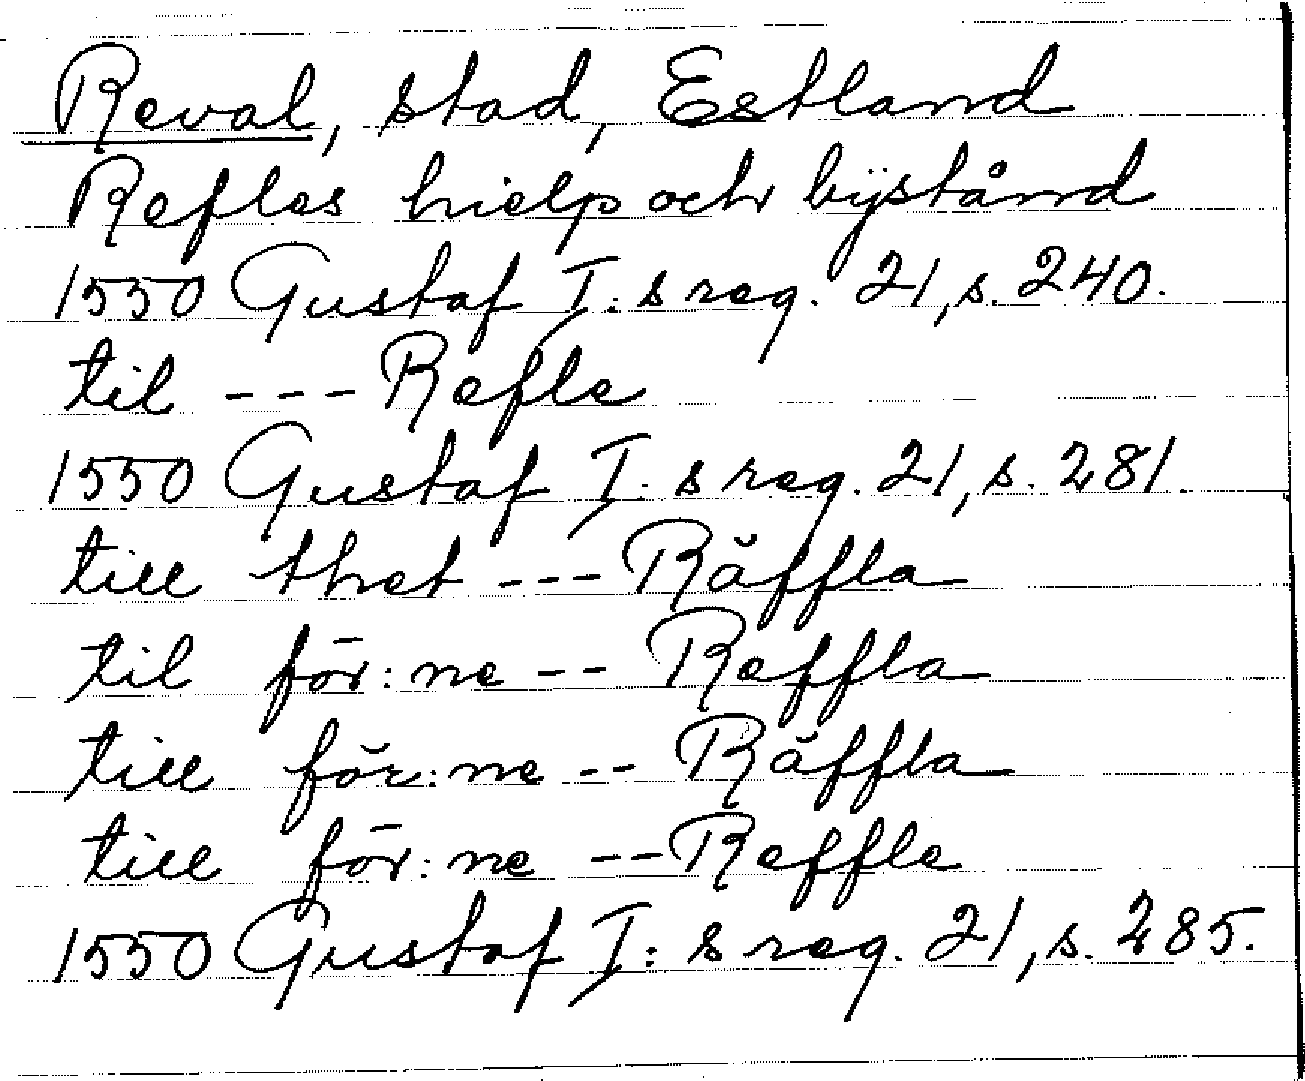 Reval, stad, Estland
Refles hielp och bijstånd
1550 Gustaf I: s reg. 21, s. 240.
til --- Refle
1550 Gustaf I: s reg. 21, s. 281.
till thet --- Räffla
til för:ne -- Reffla
till för:ne -- Räffla
till för:ne -- Reffle
1550 Gustaf I: s reg. 21, s. 285.